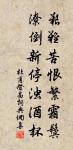 艱難苦恨繁霜鬢
潦倒新停濁酒杯
杜甫登高詩句